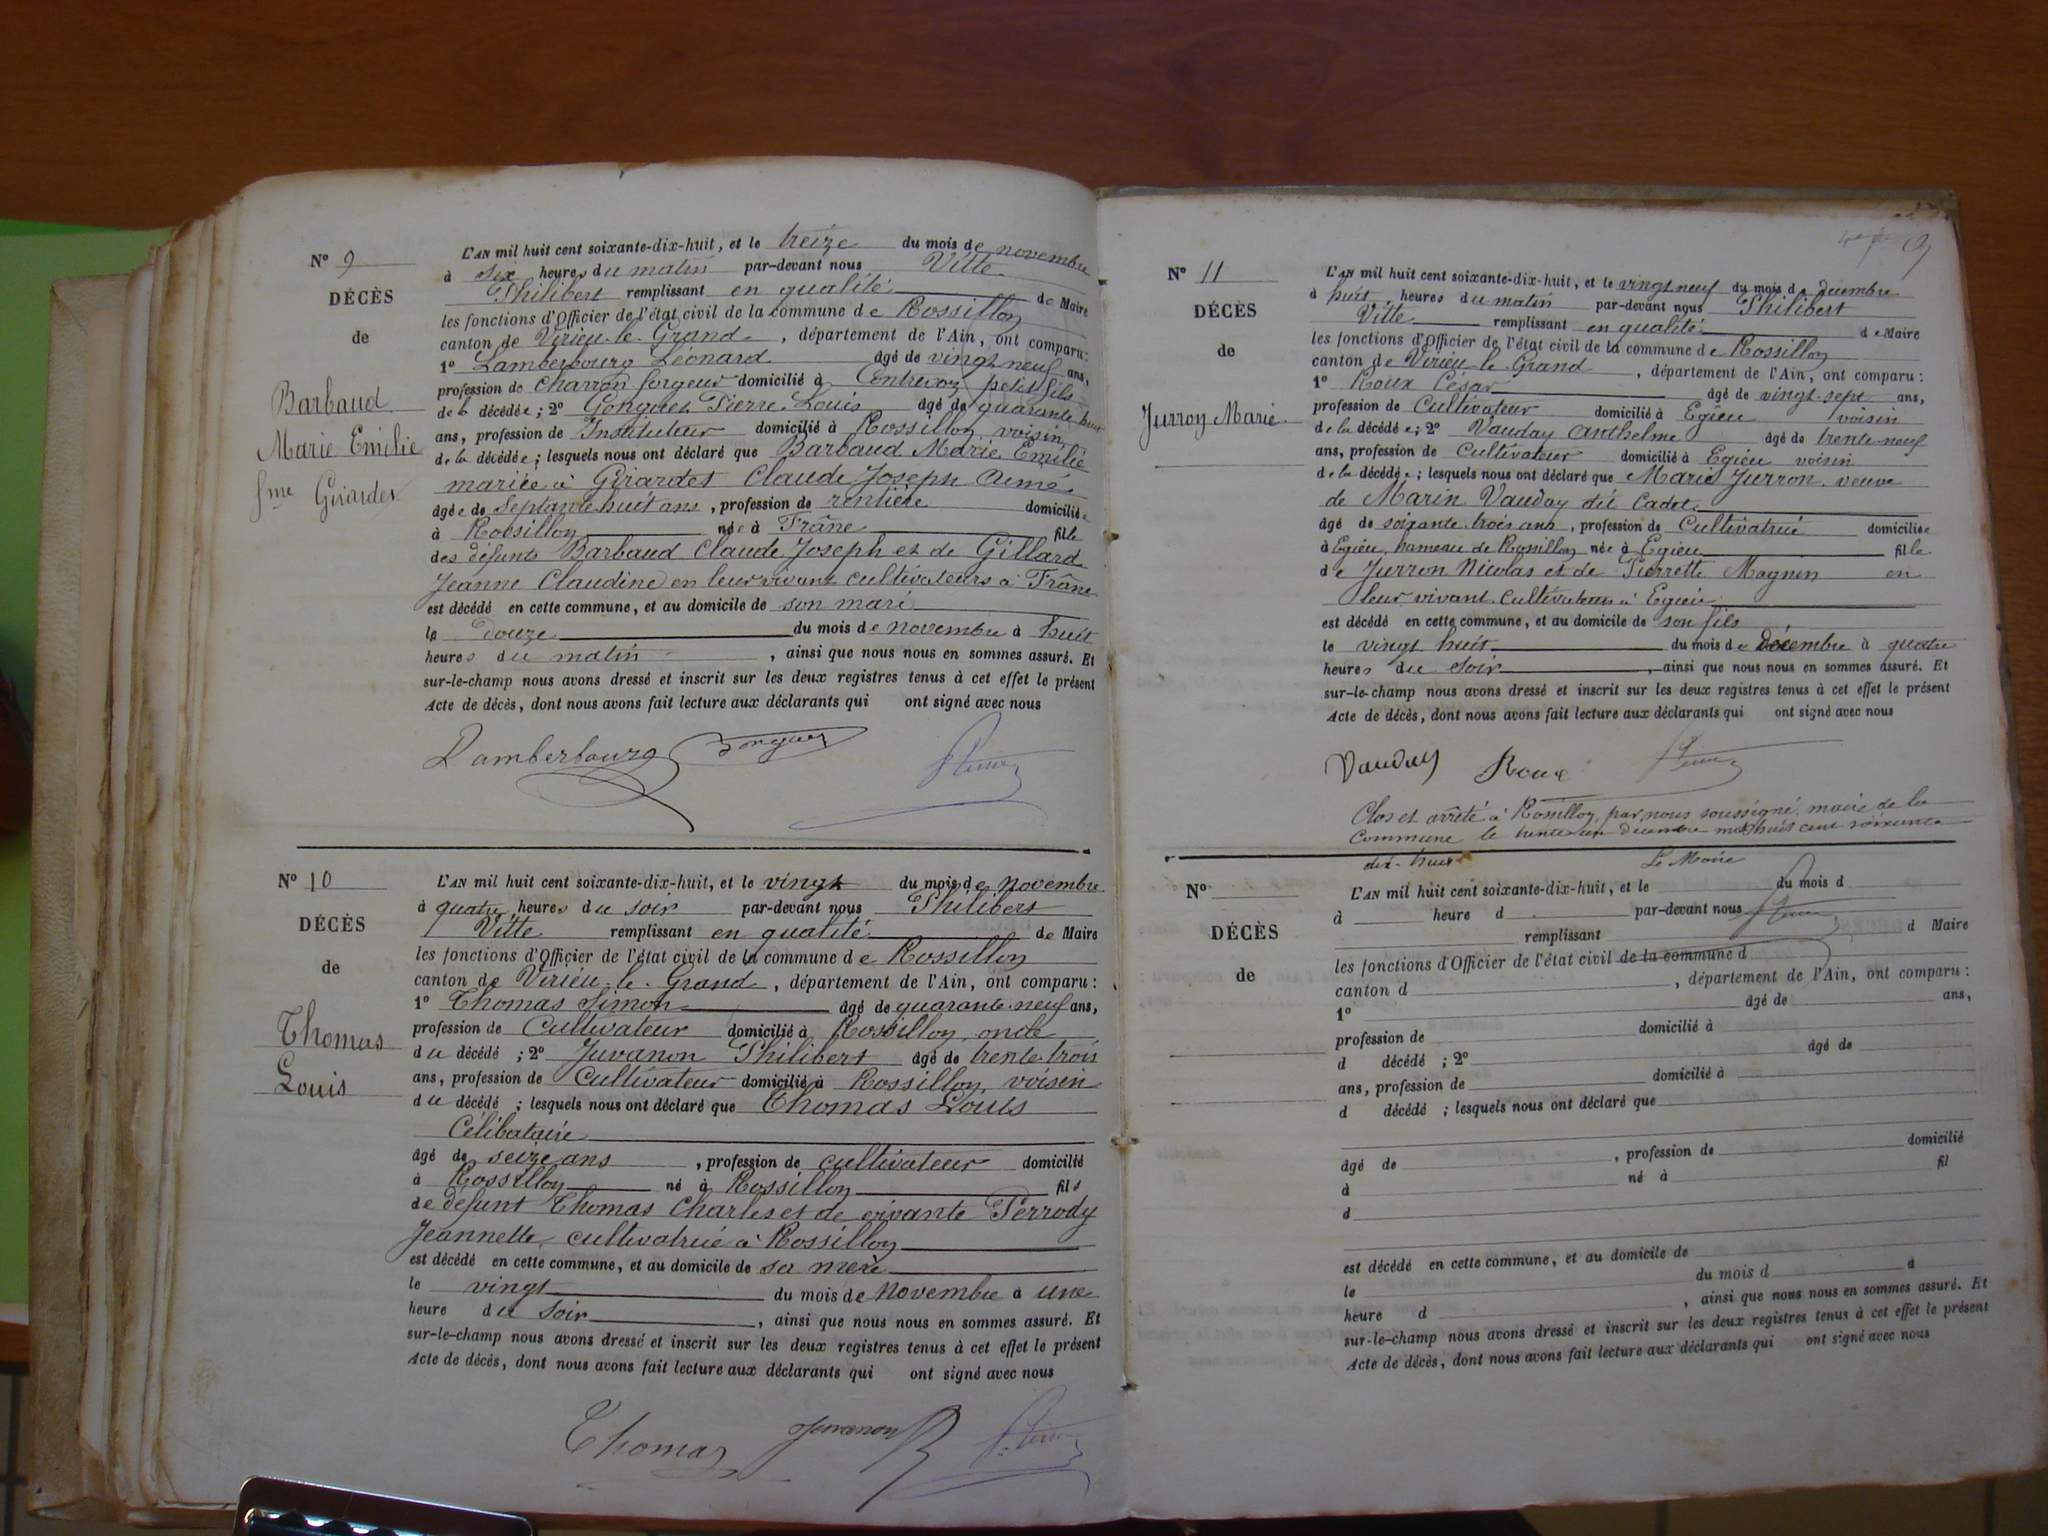 N° 9
DÉCÈS
de
Barbaud
Marie Emilie
fme Girardet
L'AN mil huit cent soixante-dix-huit, et le treize du mois de novembre
à six heures du matin par-devant nous Vitte
Philibert remplissant en qualité de Maire
les fonctions d'Officier de l'état civil de la commune de Rossillon
canton de Virieu-le-Grand, département de l'Ain, ont comparu:
1° Lamberbourg Léonard âgé de vingt-neuf ans,
profession de charron forgeur domicilié à petit fils
de la décédée; 2° Gonguet Pierre Louis âgé de quarante huit
ans, profession de Instituteur domicilié à Rossillon, voisin
de la décédée; lesquels nous ont déclaré que Barbaud Marie Emilie
mariée à Girardet Claude Joseph Aimé
âgée de septante-huit ans, profession de rentière domiciliée
à Rossillon née à Trâne fille
des défunts Barbaud Claude Joseph et de Gillard
Jeanne Claudine en leur vivant cultivateurs à Trâne
est décédé en cette commune, et au domicile de son mari
le douze du mois de novembre à huit
heures du matin, ainsi que nous nous en sommes assuré. Et
sur-le-champ nous avons dressé et inscrit sur les deux registres tenus à cet effet le présent
Acte de décès, dont nous avons fait lecture aux déclarants qui ont signé avec nous
Lamberbourg Gonguet
N° 10
DÉCÈS
de
Thomas
Louis
L'AN mil huit cent soixante-dix-huit, et le vingt du mois de novembre
à quatre heures du soir par-devant nous Philibert
Vitte remplissant en qualité de Maire
les fonctions d'Officier de l'état civil de la commune de Rossillon
canton de Virieu-le-Grand, département de l'Ain, ont comparu:
1° Thomas Simon âgé de quarante-neuf ans,
profession de Cultivateur domicilié à Rossillon, oncle
du décédé ; 2° Juvanon Philibert âgé de trente-trois
ans, profession de Cultivateur domicilié à Rossillon, voisin
du décédé ; lesquels nous ont déclaré que Thomas Louis
Célibataire
âgé de seize ans, profession de cultivateur domicilié
à Rossillon né à Rossillon fils
de défunt Thomas Charles et de vivante Perrody
Jeannette, cultivatrice à Rossillon
est décédé en cette commune, et au domicile de sa mère
le vingt du mois de novembre à une
heure du soir, ainsi que nous nous en sommes assuré. Et
sur-le-champ nous avons dressé et inscrit sur les deux registres tenus à cet effet le présent
Acte de décès, dont nous avons fait lecture aux déclarants qui ont signé avec nous
Thomas Juvanon
N° 11
DÉCÈS
de
Jurron Marie
L'AN mil huit cent soixante-dix-huit, et le vingt neuf du mois de décembre
à huit heures du matin par-devant nous Philibert
Vitte remplissant en qualité de Maire
les fonctions d'Officier de l'état civil de la commune de Rossillon
canton de Virieu-le-Grand, département de l'Ain, ont comparu:
1° Roux César âgé de vingt-sept ans,
profession de Cultivateur domicilié à Egieu voisin
de la décédée; 2° Vauday Anthelme âgé de trente-neuf
ans, profession de Cultivateur domicilié à Egieu voisin
de la décédée ; lesquels nous ont déclaré que Marie Jurron veuve
de Marin Vauday dit Cadet
âgé de soixante-trois ans, profession de Cultivatrice domiciliée
à Egieu, hameau de Rossillon née à Egieu fille
de Jurron Nicolas et de Pierrette Magnin en
leur vivant cultivateurs à Egieu
est décédé en cette commune, et au domicile de son fils
le vingt huit du mois de Décembre à quatre
heures du soir, ainsi que nous nous en sommes assuré. Et
sur-le-champ nous avons dressé et inscrit sur les deux registres tenus à cet effet le présent
Acte de décès, dont nous avons fait lecture aux déclarants qui ont signé avec nous
Vauday Roux
Clos et arrêté à Rossillon, par nous soussigné, maire de la
Commune le trente un Décembre mil huit cent soixante
dix-huit Le Maire
N°
DÉCÈS
de
L'AN mil huit cent soixante-dix-huit, et le du mois d
à heure d par-devant nous
remplissant d Maire
les fonctions d'Officier de l'état civil de la commune d
canton d , département de l'Ain, ont comparu:
1° âgé de ans,
profession de domicilié à
d décédé ; 2° âgé de
ans, profession de domicilié à
d décédé ; lesquels nous ont déclaré que
âgé de , profession de domicilié
à né à fil
d
est décédé en cette commune, et au domicile de
le du mois d à
heure d , ainsi que nous nous en sommes assuré. Et
sur-le-champ nous avons dressé et inscrit sur les deux registres tenus à cet effet le présent
Acte de décès, dont nous avons fait lecture aux déclarants qui ont signé avec nous